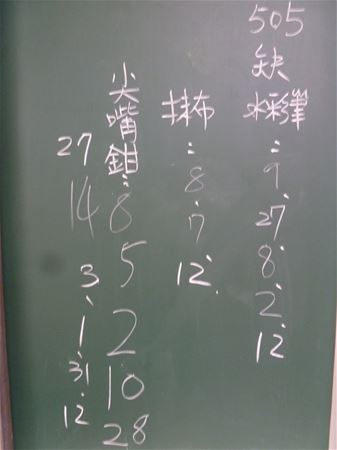 505
缺
水彩筆：9、27、8、2、12
抹布：8、7、12、
尖嘴鉗：8 5 2 10 28
27 14 3、1、31、12